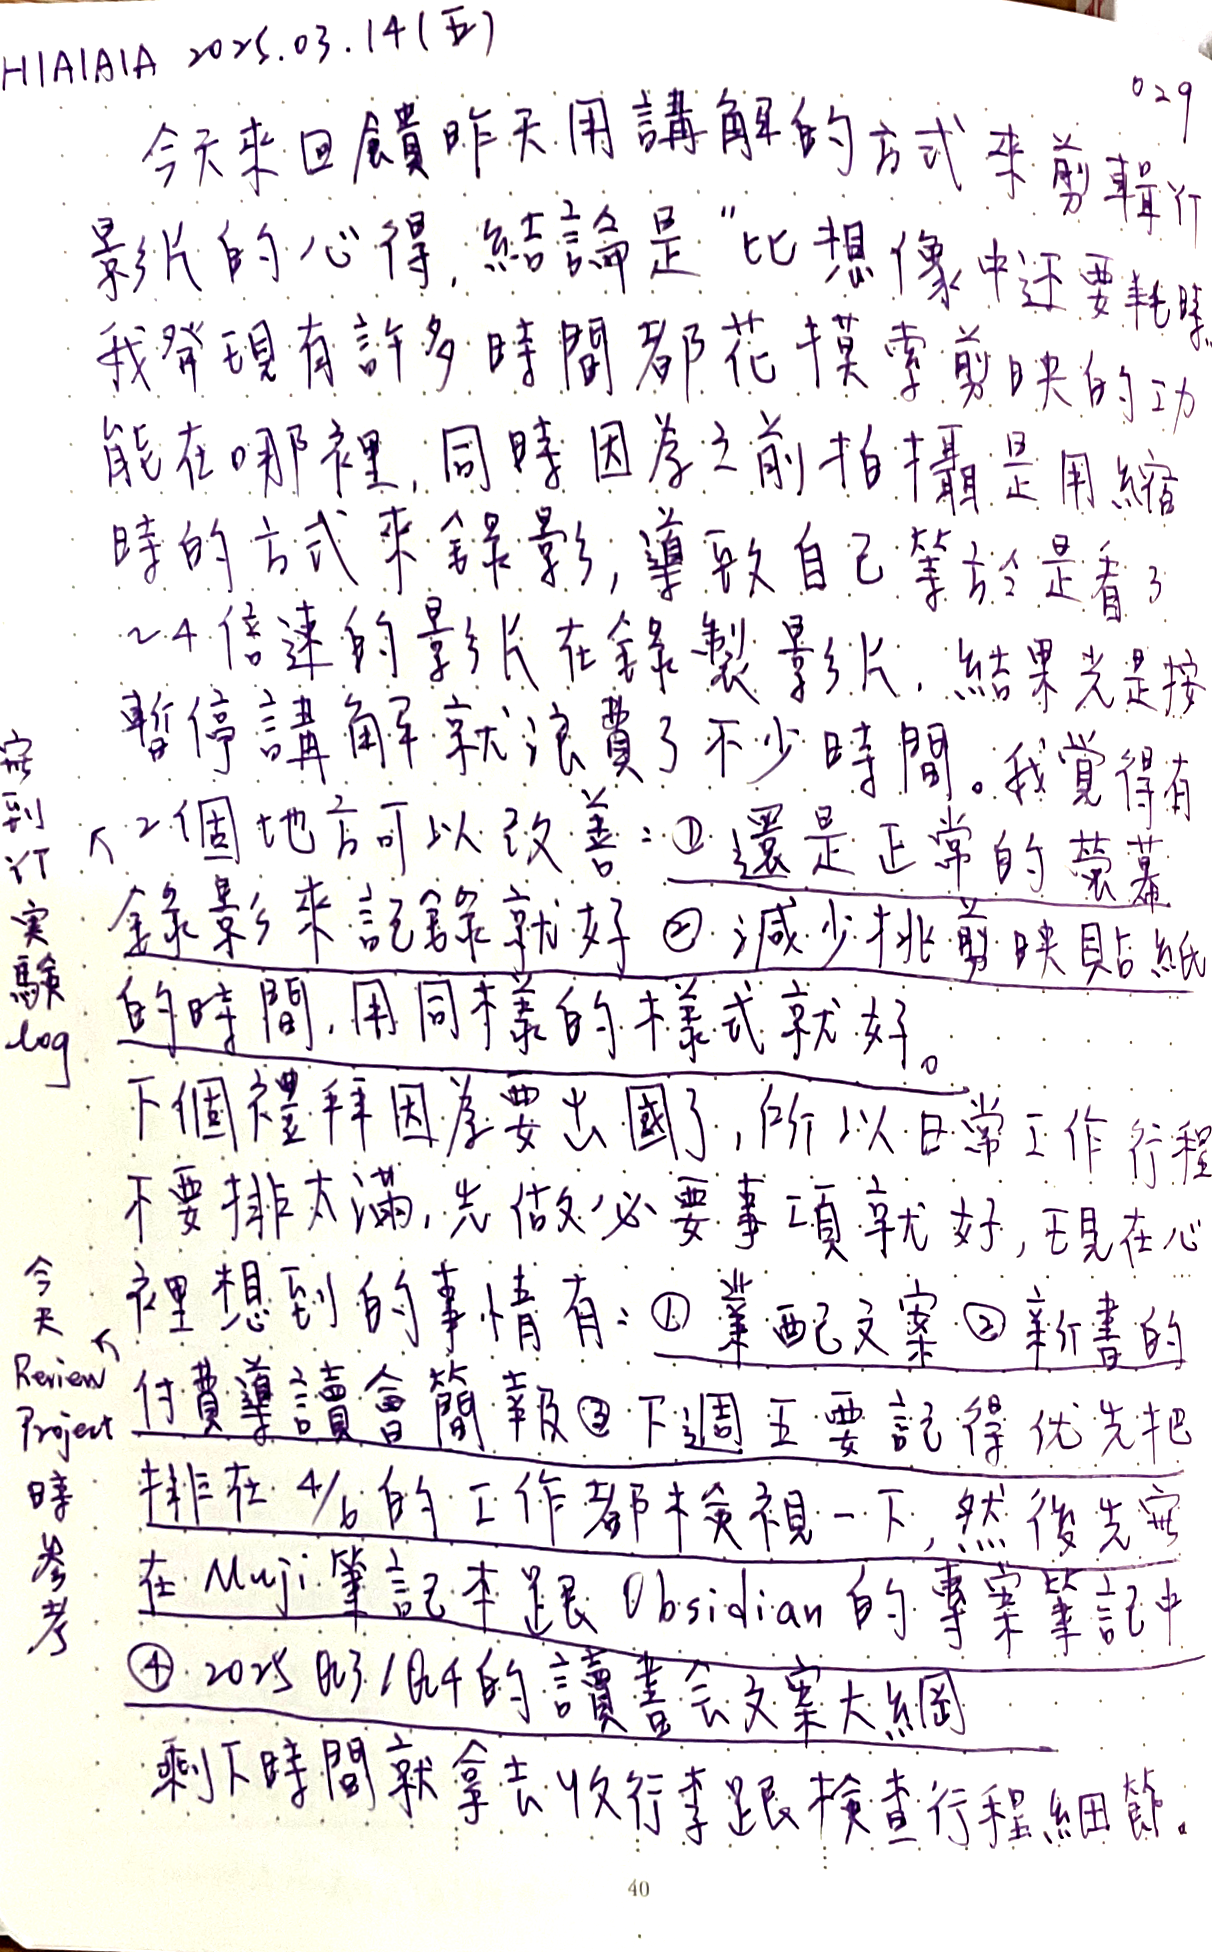 H1A1A1A 2025.03.14(五)
029
今天來回饋昨天用講解的方式來剪輯YT
影片的心得,結論是"比想像中还要耗時"
我發現有許多時間都花摸索剪映的功
能在哪裡,同時因為之前拍攝是用縮
時的方式來錄影,導致自己等於是看了
~4倍速的影片在錄製影片,結果光是按
暫停講解就浪費了不少時間。我覺得有
2個地方可以改善:①還是正常的螢幕
錄影來記錄就好②減少挑剪映貼紙
的時間,用同樣的樣式就好。
下個禮拜因為要出國了,所以日常工作行程
不要排太滿,先做必要事項就好,現在心
裡想到的事情有:①業配文案②新書的
付費導讀會簡報③下週五要記得优先把
排在4/6的工作都檢視一下,然後先寫
在Muji筆記本跟Obsidian的專案筆記中
④2025 Q3/Q4的讀書会文案大綱
剩下時間就拿去收行李跟檢查行程細節。
寫
到
YT
実
驗
log
今
天
Review
Project
時
参
考
40